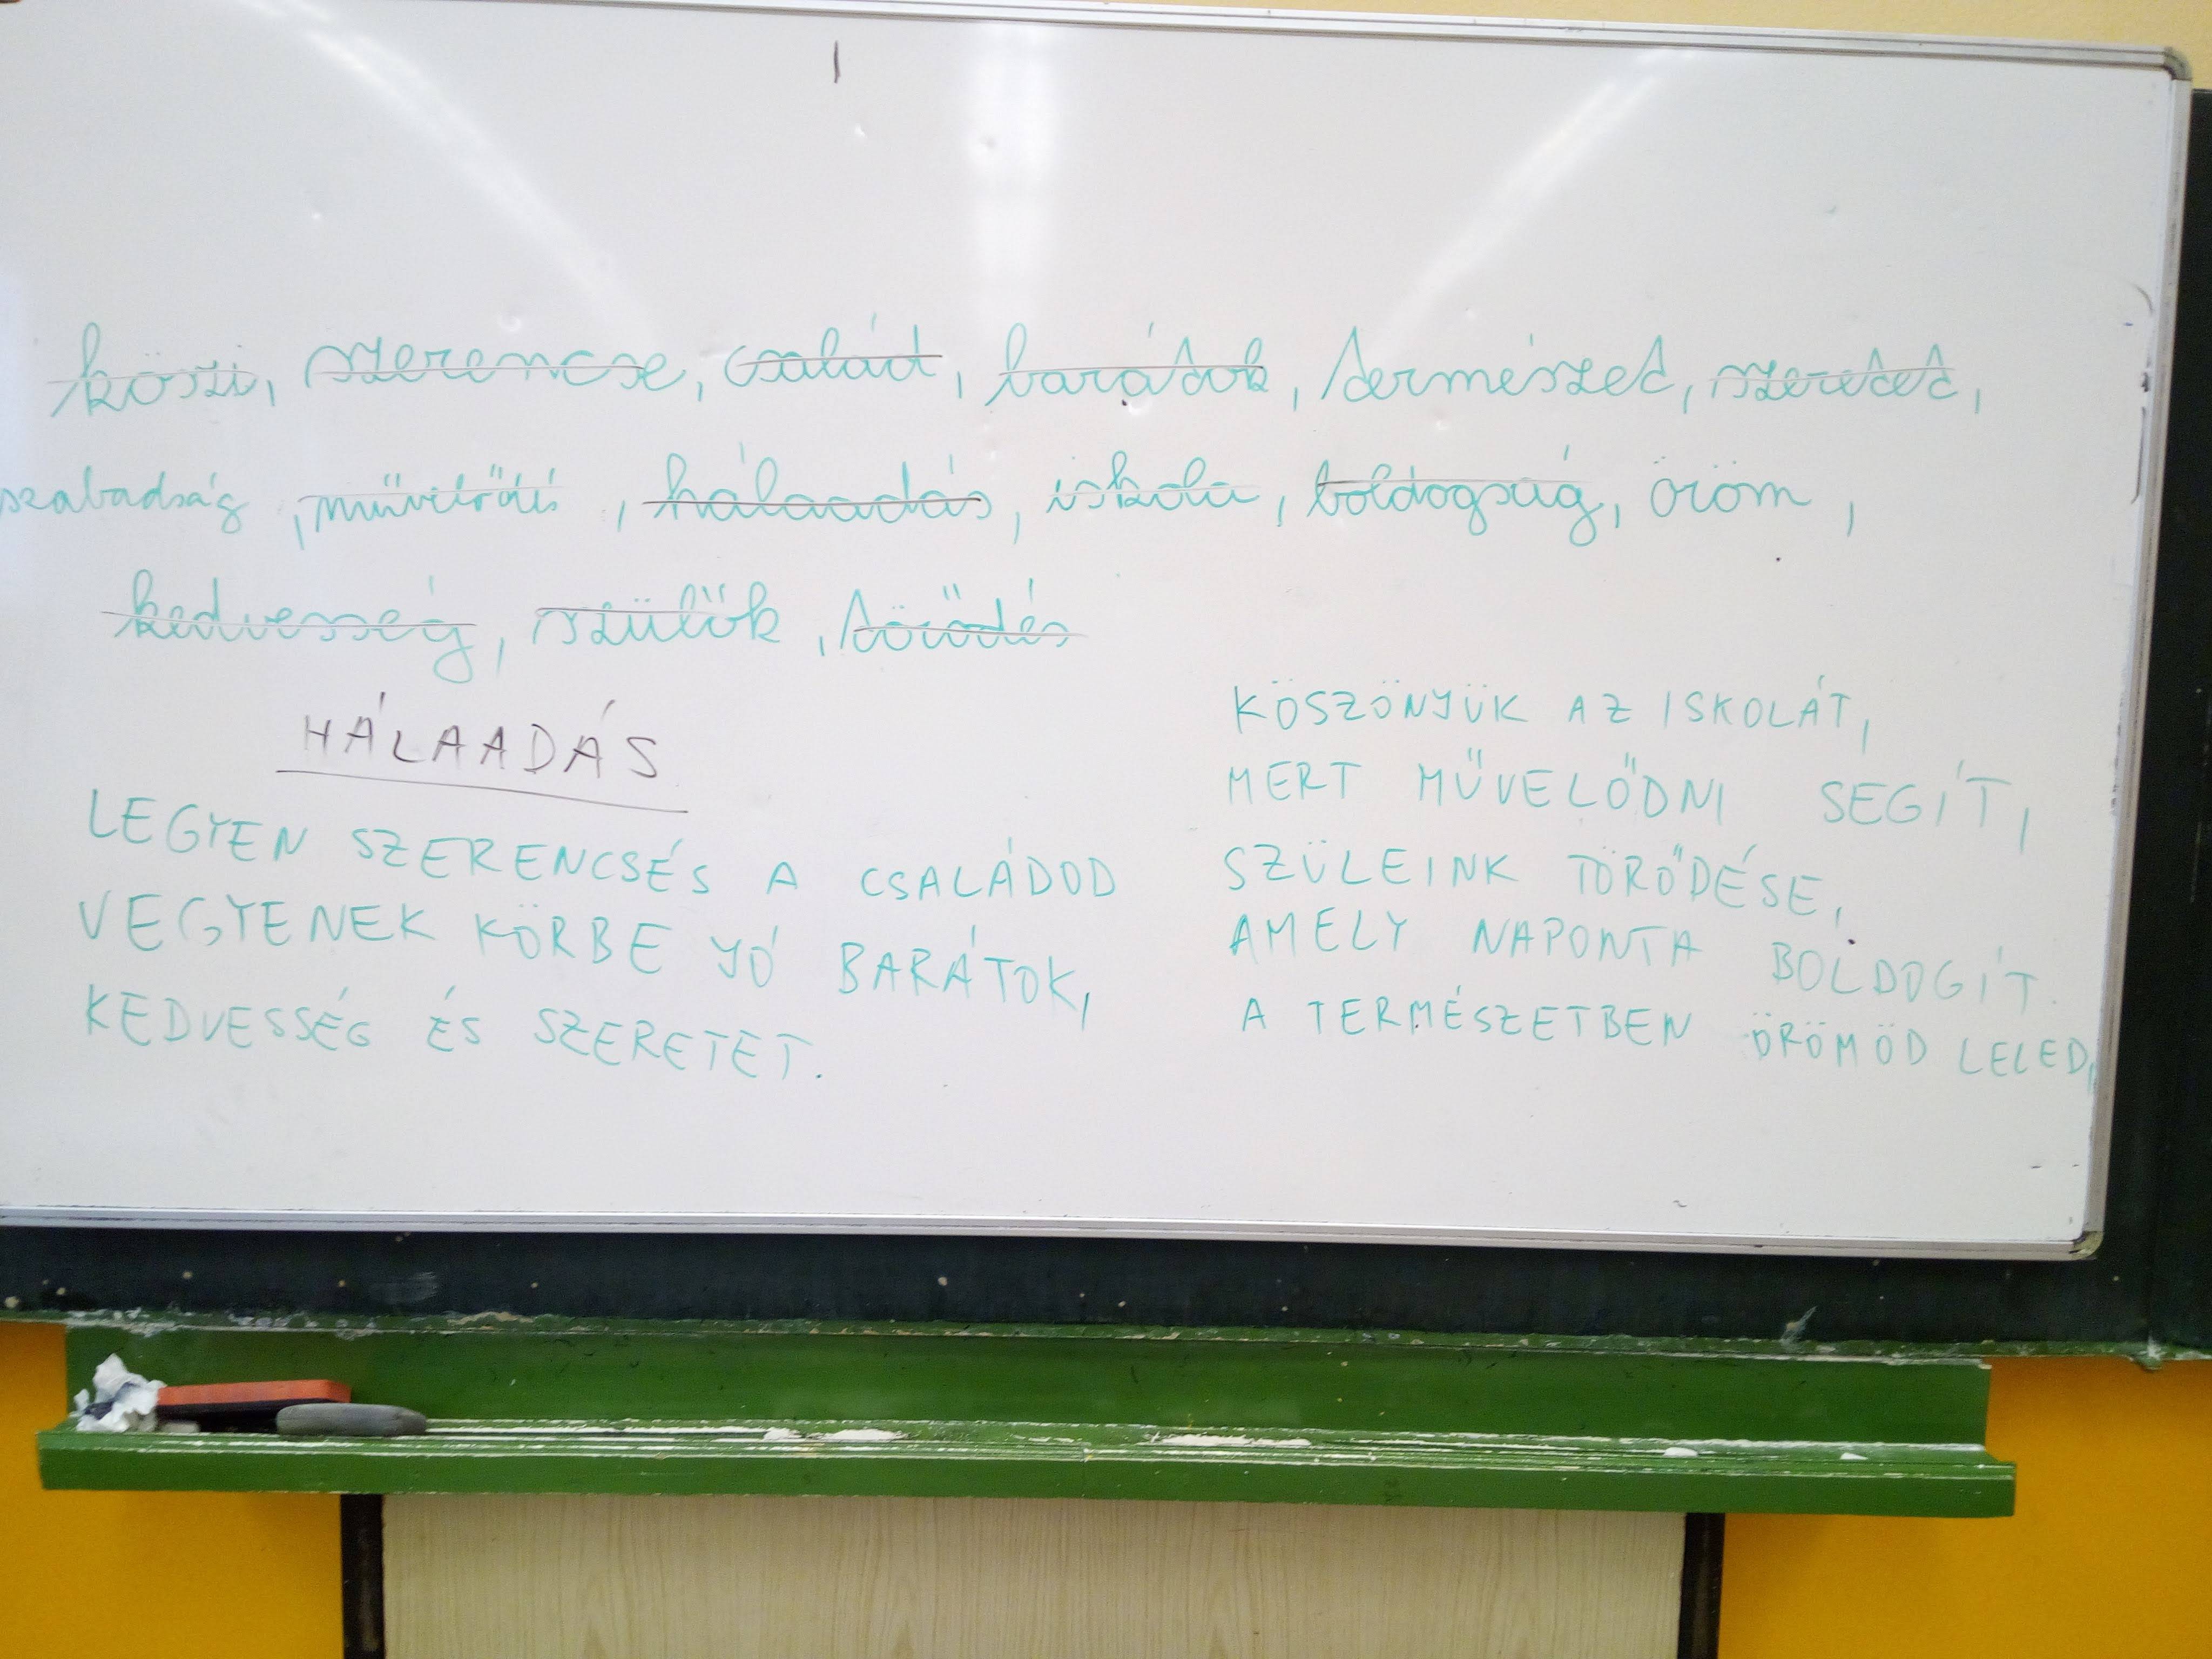 köszi, szerencse, család, barátok, természet, szeretet,
szabadság, művelődés, hálaadás, iskola, boldogság, öröm,
kedvesség, szülők, törődés
HÁLAADÁS
LEGYEN SZERENCSÉS A CSALÁDOD
VEGYENEK KÖRBE JÓ BARÁTOK,
KEDVESSÉG ÉS SZERETET.
KÖSZÖNJÜK AZ ISKOLÁT,
MERT MŰVELŐDNI SEGÍT,
SZÜLEINK TÖRŐDÉSE,
AMELY NAPONTA BOLDOGÍT.
A TERMÉSZETBEN ÖRÖMÖD LELED,